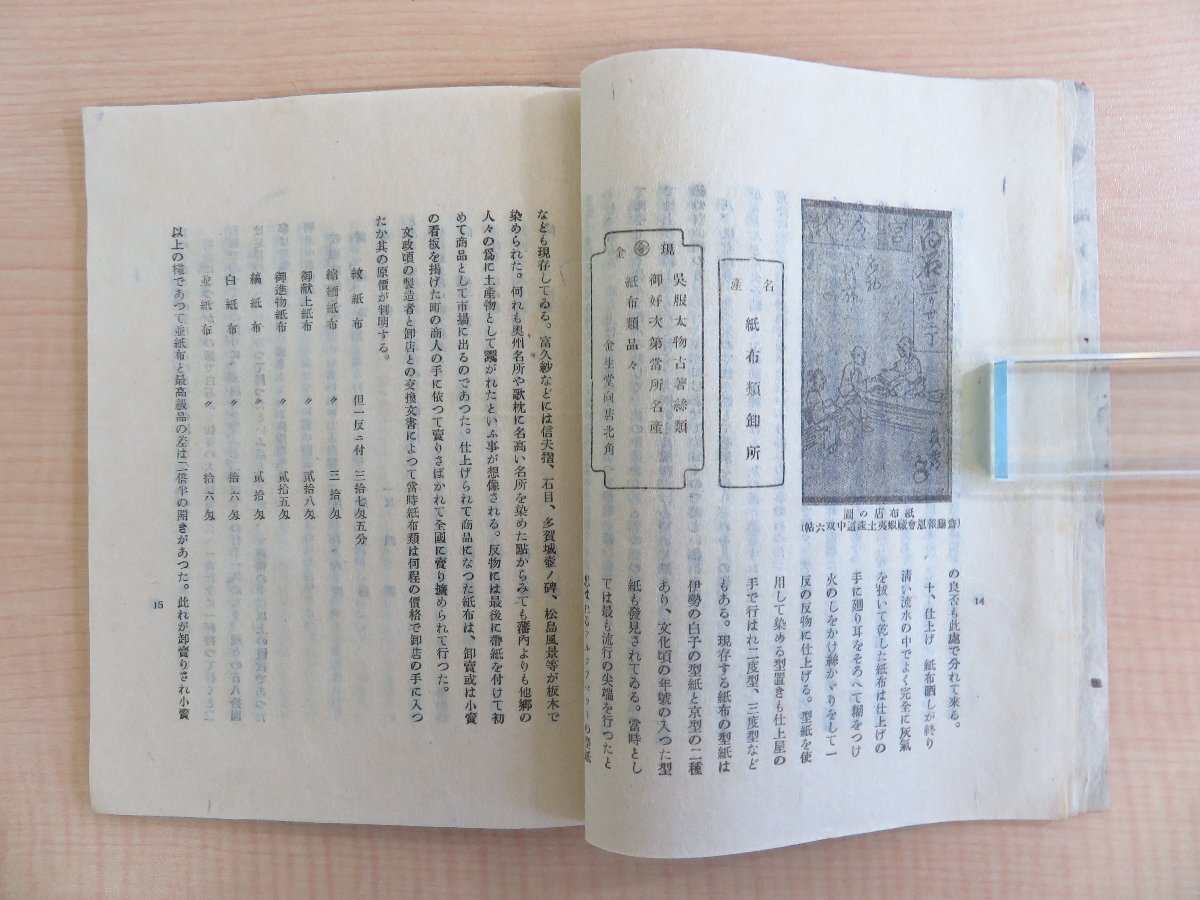 の良否も此處で分れて來る。
十、仕上げ 紙布晒しが終り
清い流水の中でよく完全に灰氣
を抜いて乾した紙布は仕上げの
手に廻り耳をそろへて糊をつけ
火のしをかけ絲かゞりをして一
反の反物に仕上げる。型紙を使
用して染める型置きも仕上屋の
手で行はれ二度型、三度型など
もある。現存する紙布の型紙は
伊勢の白子の型紙と京型の二種
あり、文化頃の年號の入つた型
紙も發見されてゐる。當時とし
ては最も流行の尖端を行つたと
紙布店の圖
名産
紙布類卸所
現金
吳服太物古著綿類
御好次第當所名產
紙布類品々
金生堂向店北角
14
なども現存してゐる。富久紗などには信夫摺、石目、多賀城壺ノ碑、松島風景等が板木で
染められた。何れも奥州名所や歌枕に名高い名所を染めた點からみても藩內よりも他鄉の
人々の爲に土産物として躍がれたといふ事が想像される。反物には最後に帶紙を付けて初
めて商品として市場に出るのであつた。仕上げられて商品になつた紙布は、卸賣或は小賣
の看板を揚げた町の商人の手に依つて賣りさばかれて全國に賣り擴められて行つた。
文政頃の製造者と卸店との交換文書によつて當時紙布類は何程の價格で卸店の手に入つ
たか其の原價が判明する。
紋紙布 但一反ニ付 三拾七匁五分
縮緬紙布 〃 三拾匁
御献上紙布 〃 貳拾八匁
御進物紙布 〃 貳拾五匁
縞紙布 〃 貳拾匁
白紙布 〃 拾六匁
並紙布 〃 拾六匁
以上の樣であつて並紙布と最高級品の差は二倍半の開きがあつた。此れが卸賣りされ小賣
15